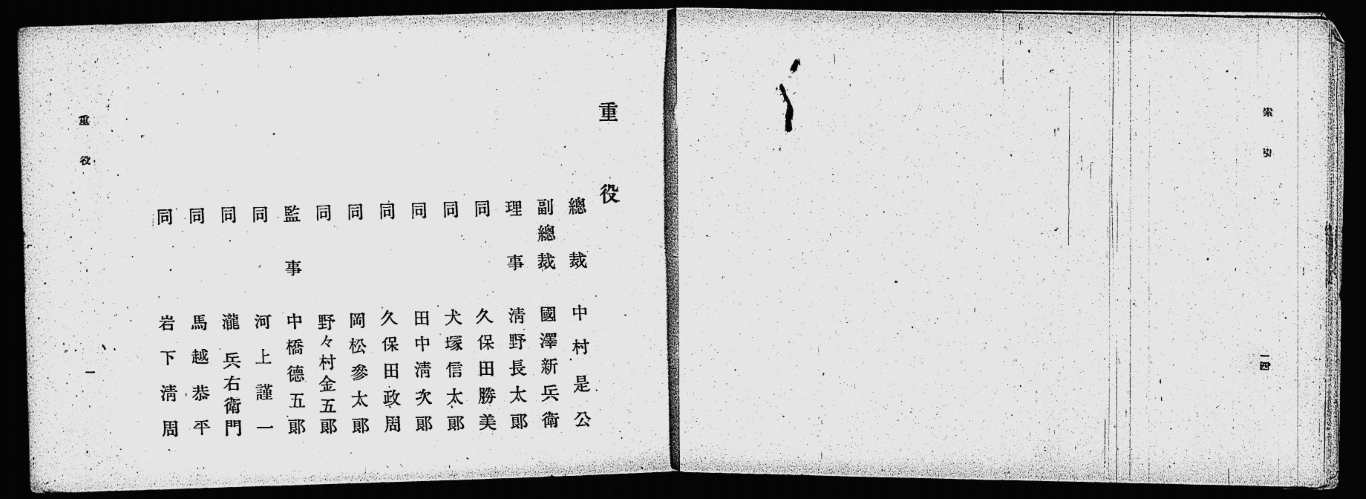 索引
一四
重役
總裁 中村是公
副總裁 國澤新兵衛
理事 清野長太郎
同 久保田勝美
同 犬塚信太郎
同 田中清次郎
同 久保田政周
同 岡松參太郎
同 野々村金五郎
監事 中橋德五郎
同 河上謹一
同 瀧兵右衛門
同 馬越恭平
同 岩下清周
重役
一